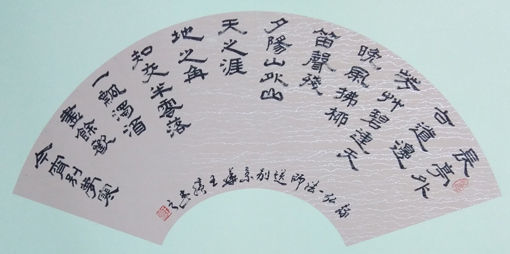 長亭外
古道邊
芳艸碧連天
晚風拂柳
笛聲殘
夕陽山外山
天之涯
地之角
知交半零落
一瓢濁酒
盡餘歡
今宵别夢寒
弘一法師送别